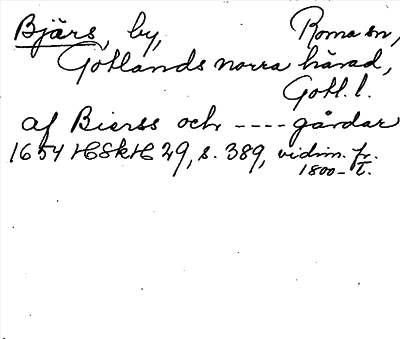 Bjärs, by, Roma sn,
Gotlands norra härad,
Gotl. l.
af Bierss och ---- gårdar
1654 HSkH 29, s. 389, vidim. fr.
1800-t.